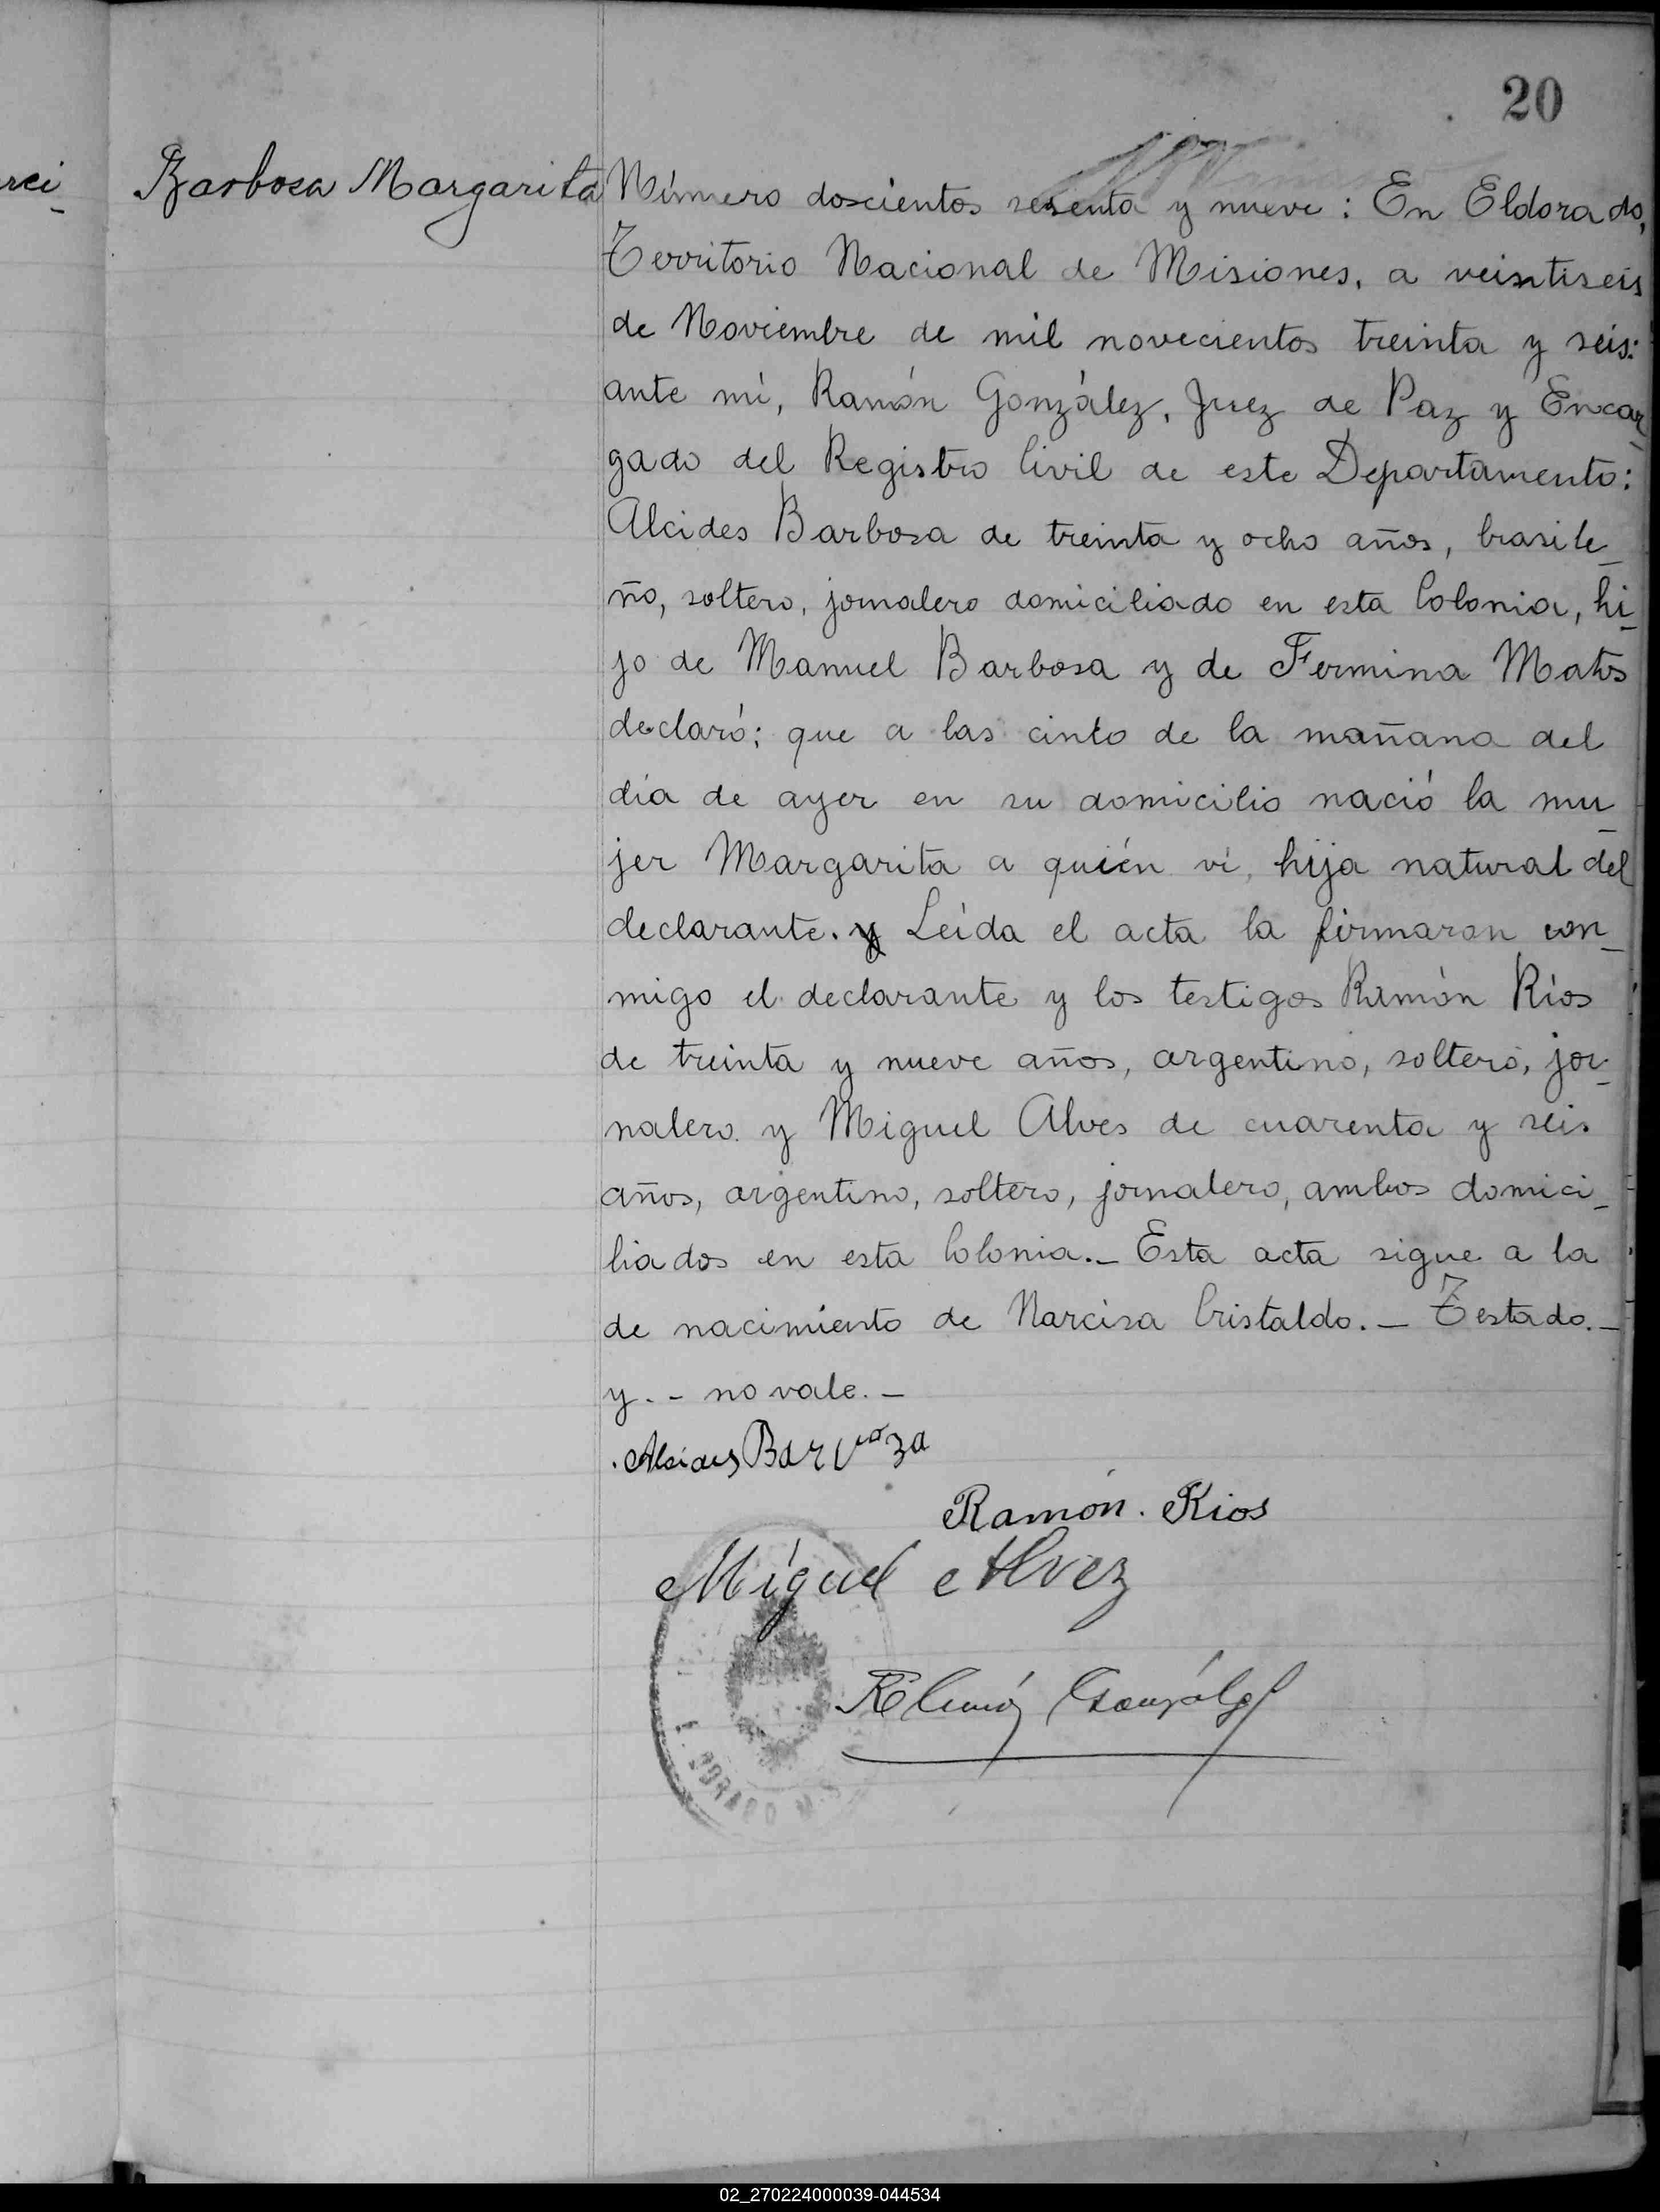 20
rci_
Barbosa Margarita
Número doscientos sesenta y nueve: En Eldorado,
Territorio Nacional de Misiones, a veintiseis
de Noviembre de mil novecientos treinta y seis:
ante mí, Ramón González, Juez de Paz y Encar_
gado del Registro Civil de este Departamento:
Alcides Barbosa de treinta y ocho años, brasile_
ño, soltero, jornalero domiciliado en esta Colonia, hi_
jo de Manuel Barbosa y de Fermina Matos
declaró: que a las cinco de la mañana del
día de ayer en su domicilio nació la mu_
jer Margarita a quién ví, hija natural del
declarante. y Leída el acta la firmaron con_
migo el declarante y los testigos Ramón Ríos
de treinta y nueve años, argentino, soltero, jor_
nalero y Miguel Alves de cuarenta y seis
años, argentino, soltero, jornalero, ambos domici_
liados en esta Colonia._ Esta acta sigue a la
de nacimiento de Narcisa Cristaldo._ Testado._
y._ no vale._
Alsides Barboza
Ramón. Rios
Miguel Alvez
Ramón González
DORADO
02_270224000039-044534